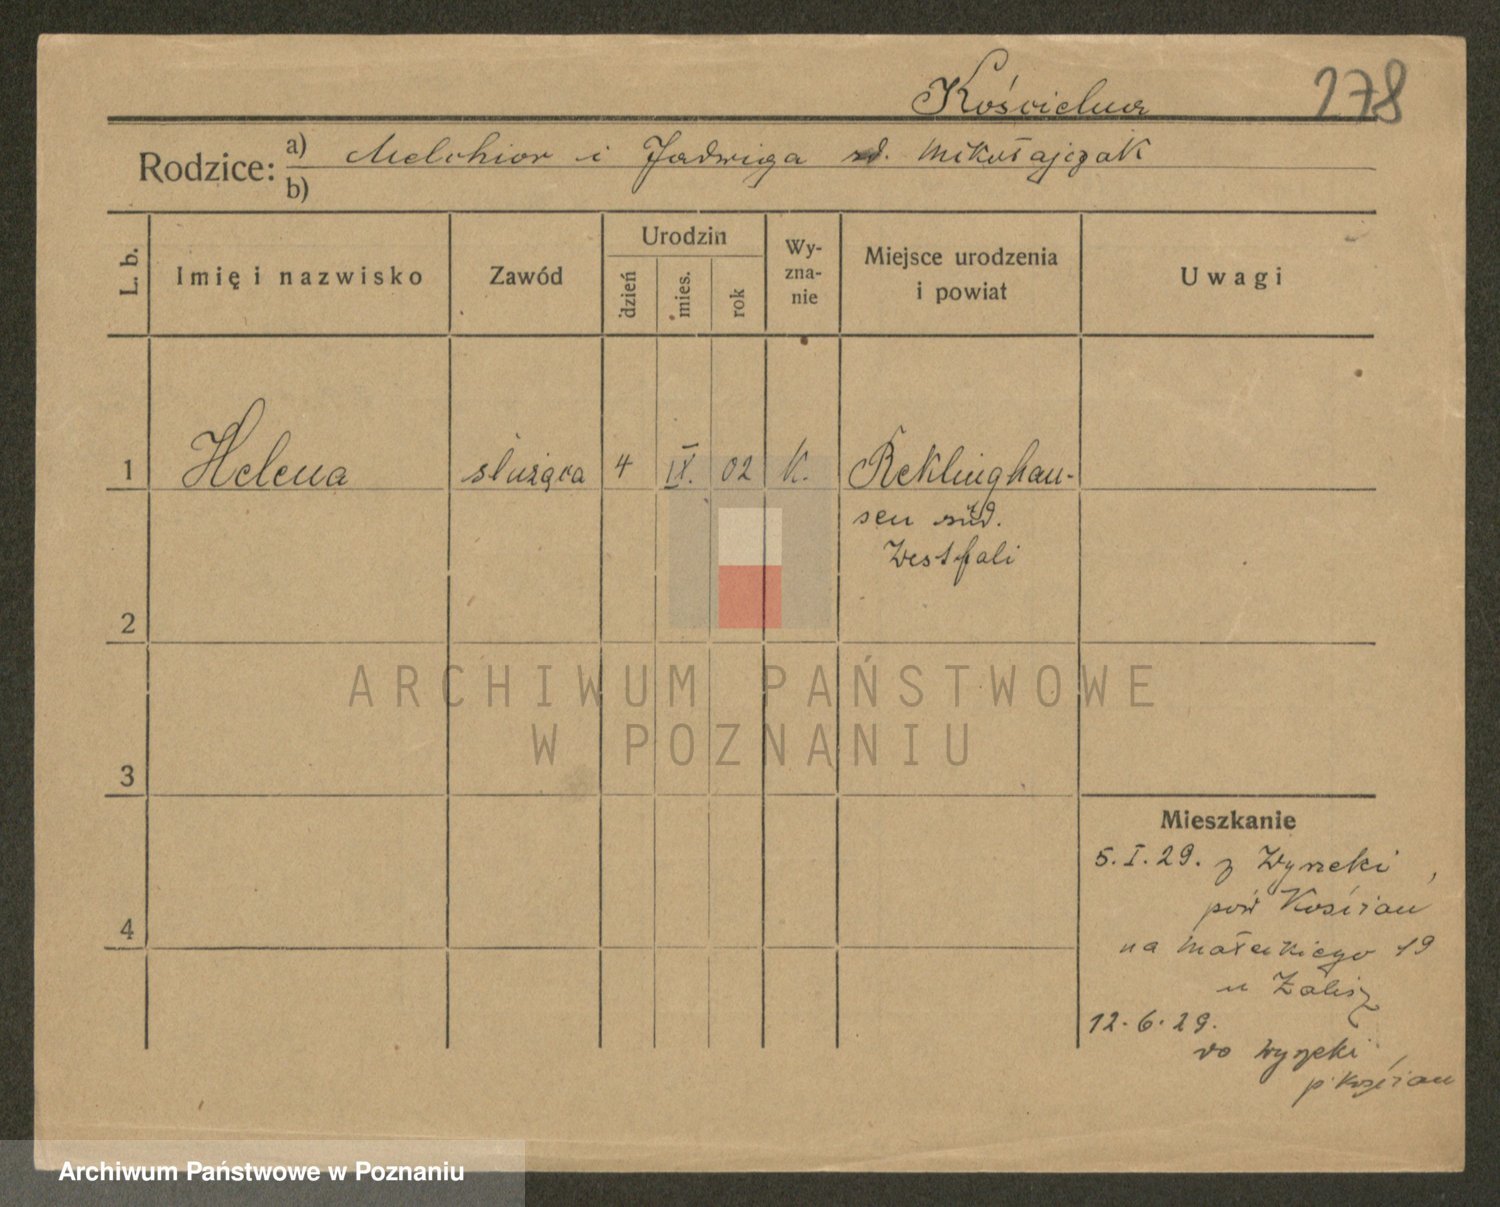 Kościelna 278
Rodzice: a) Melchior i Jadwiga zd. Mikołajczak
b)
L. b. Imię i nazwisko Zawód Urodzin dzień mies. rok Wy-zna-nie Miejsce urodzenia i powiat Uwagi
1 Helena służąca 4 IX. 02 K. Reklinghau-
sen süd.
Westfali
2
ARCHIWUM PAŃSTWOWE
W POZNANIU
3
Mieszkanie
5. I. 29. z Wyrzeki,
pow Kościan
4
na Małeckiego 19
u
12. 6. 29.
do Wyrzeki,
p. Kościan
Archiwum Państwowe w Poznaniu